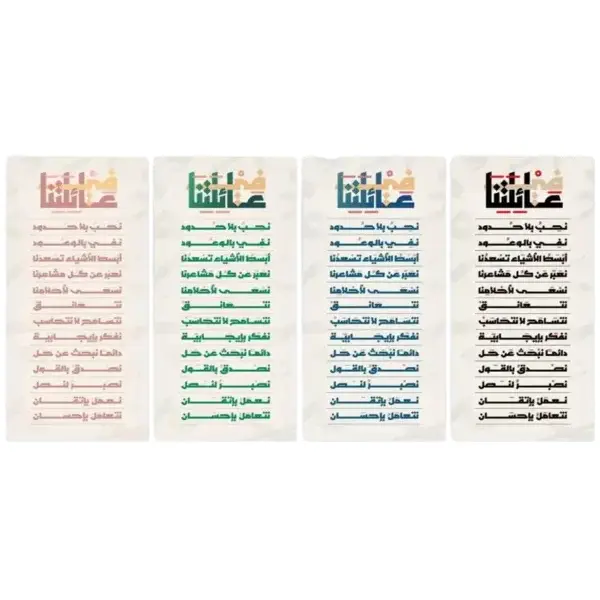 في
عائلتنا
نحبُّ بلا حدود
نفي بالوعود
أبسط الأشياء تسعدنا
نعبّر عن كل مشاعرنا
نسعى لأحلامنا
نتعانق
نتسامح لا نتحاسب
نفكر بإيجابية
دائما نبحث عن حل
نصدق بالقول
نصبر لنصل
نعمل بإتقان
نتعامل بإحسان
في
عائلتنا
نحبُّ بلا حدود
نفي بالوعود
أبسط الأشياء تسعدنا
نعبّر عن كل مشاعرنا
نسعى لأحلامنا
نتعانق
نتسامح لا نتحاسب
نفكر بإيجابية
دائما نبحث عن حل
نصدق بالقول
نصبر لنصل
نعمل بإتقان
نتعامل بإحسان
في
عائلتنا
نحبُّ بلا حدود
نفي بالوعود
أبسط الأشياء تسعدنا
نعبّر عن كل مشاعرنا
نسعى لأحلامنا
نتعانق
نتسامح لا نتحاسب
نفكر بإيجابية
دائما نبحث عن حل
نصدق بالقول
نصبر لنصل
نعمل بإتقان
نتعامل بإحسان
في
عائلتنا
نحبُّ بلا حدود
نفي بالوعود
أبسط الأشياء تسعدنا
نعبّر عن كل مشاعرنا
نسعى لأحلامنا
نتعانق
نتسامح لا نتحاسب
نفكر بإيجابية
دائما نبحث عن حل
نصدق بالقول
نصبر لنصل
نعمل بإتقان
نتعامل بإحسان